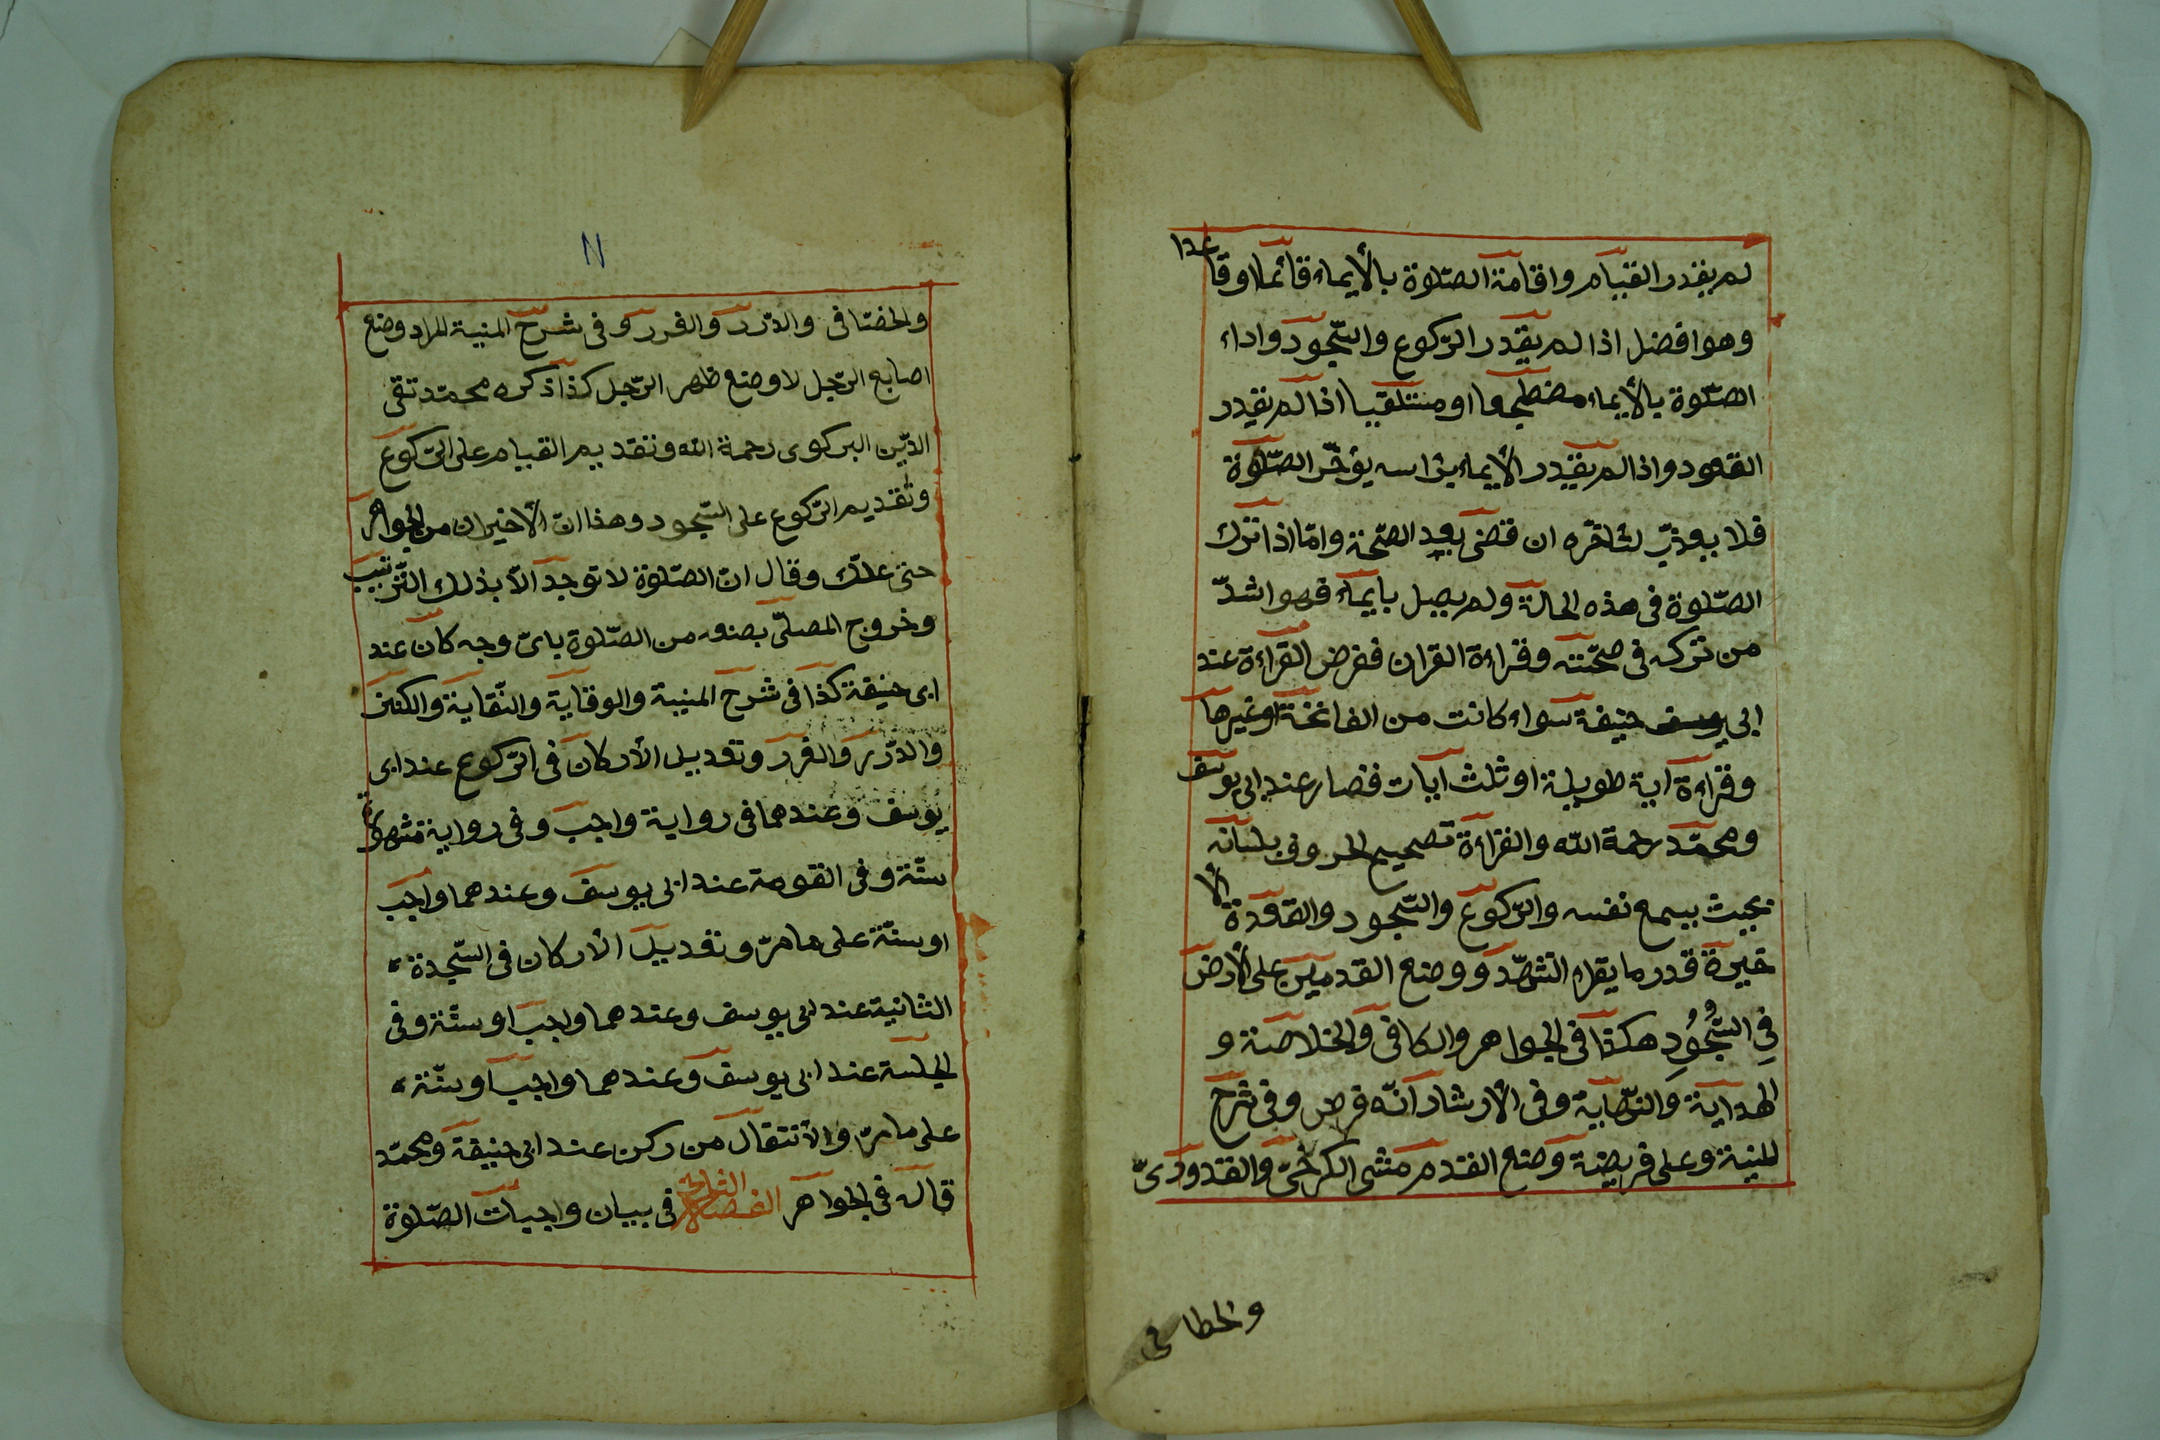 لم يقدر القيام واقامة الصّلوة بالأيماء قائما اوقاعدا
وهو افضل اذا لم يقدر الرّكوع والسّجود واداء
الصّلوة بالأيماء مضطجعا او مستلقيا اذا لم يقدر
القعود واذا لم يقدر الأيماء برأسه يؤخّر الصّلوة
فلا يعذّب لتأخّره ان قضى بعد الصّحة وامّا اذا ترك
الصّلوة فى هذه الحالة ولم يصل بايماء فهو اشدّ
من تركه فى صحّته وقراءة القران ففرض القراءة عند
ابى حنيفة سواء كانت من الفاتحة اوغيرها
وقراءة اية طويلة او ثلث آيات قصار عند ابى يوسف
ومحمّد رحمة الله والقراءة تصحيح الحروف بلسانه
بحيث يسمع نفسه والرّكوع والسّجود والقعدة الأ
خيرة قدر ما يقراء التشهّد ووضع القدمين على الأرض
فِى السُّجُودِ هكذا فى الجواهر والكافى والخلاصة و
الهداية والنّهاية وفى الأرشاد انّه فرض وفى شرح
المنية وعلى فريضة وضع القدم مشى الكرخىّ والقدورىّ
والخطافى
٧
والخصّافى والدّرر والغرر وفى شرح المنية المراد وضع
اصابع الرّجل لا وضع ظهر الرّجل كذا ذكره محمّد تقى
الدّين البركوى رحمة الله وتقديم القيام على الرّكوع
وتقديم الرّكوع على السّجود وهذا انّ الأخيران من الجواهر
حتى علّك وقال انّ الصّلوة لا توجد الاّ بذلك التّرتيب
وخروج المصلّى بصنعه من الصّلوة باىّ وجه كان عند
ابى حنيفة كذا فى شرح المنية والوقاية والنّقاية والكنز
والدّرر والغرر وتعديل الأركان فى الرّكوع عند ابى
يوسف وعندهما فى رواية واجب وفى رواية مشهورة
سنّة وفى القومة عند ابى يوسف وعندهما واجب
او سنّة على ما مرّ وتعديل الأركان فى السّجدة
الثانية عند ابى يوسف وعندهما واجب او سنّة وفى
الجلسة عند ابى يوسف وعندهما واجب او سنّة
على ما مرّ والأنتقال من ركن عند ابى حنيفة ومحمّد
قاله فى الجواهر الفصل فى بيان واجبات الصّلوة